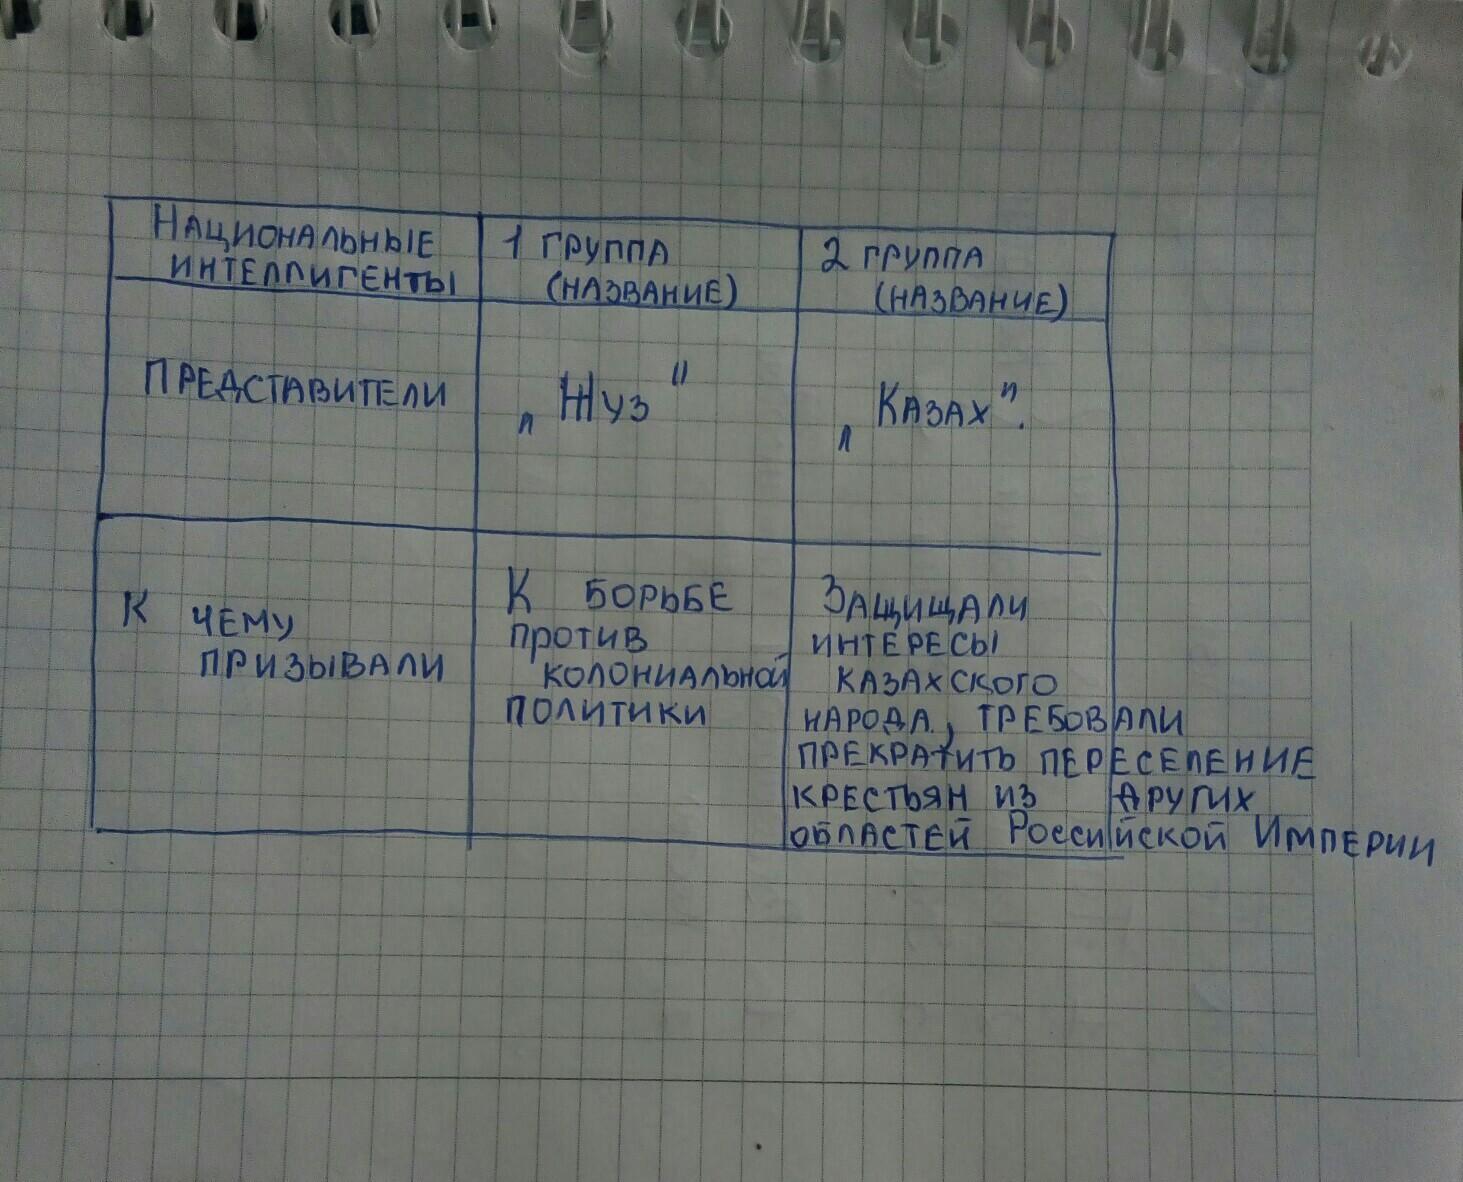 Национальные
интеллигенты
1 группа
(название)
2 группа
(название)
Представители
„Жуз"
„Казах".
К чему
призывали
К борьбе
против
колониальной
политики
Защищали
интересы
казахского
народа, требовали
прекратить переселение
крестьян из других
областей Российской Империи